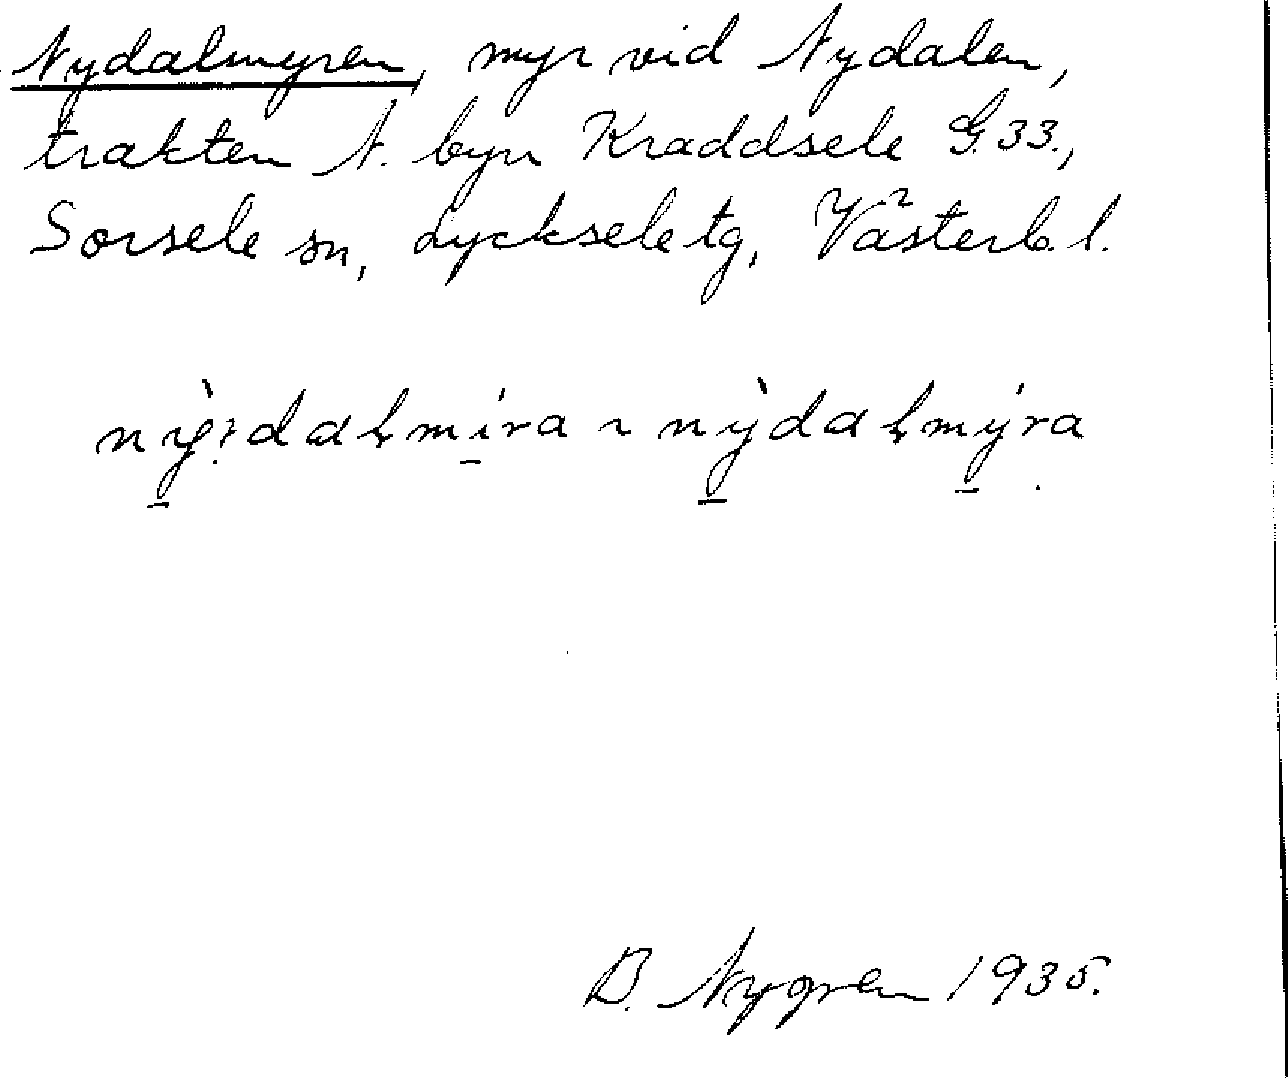 Nydalmyren, myr vid Nydalen,
trakten N. byn Kraddsele G.33.,
Sorsele sn, Lycksele tg, Västerb. l.
nỳ:daɫmíra ~ nỳdaɫmýra
B. Nygren 1935.